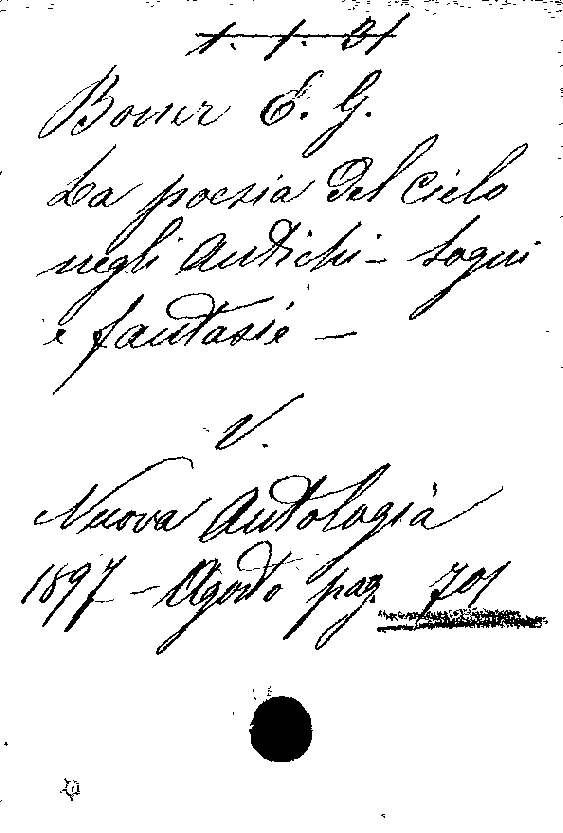 1. 1. 31
Boner E. G.
La poesia del cielo
negli antichi - Sogni
e fantasie -
V.
Nuova Antologia
1897 - Agosto pag. 701